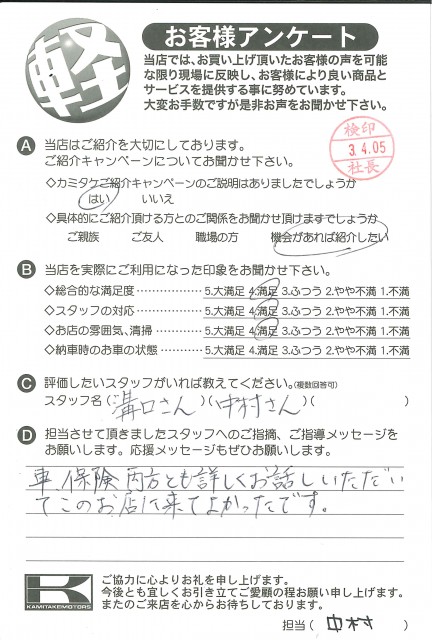 軽
お客様アンケート
当店では、お買い上げ頂いたお客様の声を可能
な限り現場に反映し、お客様により良い商品と
サービスを提供する事に努めています。
大変お手数ですが是非お声をお聞かせ下さい。
検印
3.4.05
社長
A 当店はご紹介を大切にしております。
ご紹介キャンペーンについてお聞かせ下さい。
◇カミタケご紹介キャンペーンのご説明はありましたでしょうか
はい いいえ
◇具体的にご紹介頂ける方とのご関係をお聞かせ頂けますでしょうか
ご親族 ご友人 職場の方 機会があれば紹介したい
B 当店を実際にご利用になった印象をお聞かせ下さい。
◇総合的な満足度 ・・・・・・・・・・・ 5.大満足 4.満足 3.ふつう 2.やや不満 1.不満
◇スタッフの対応 ・・・・・・・・・・・ 5.大満足 4.満足 3.ふつう 2.やや不満 1.不満
◇お店の雰囲気、清掃 ・・・・・・・ 5.大満足 4.満足 3.ふつう 2.やや不満 1.不満
◇納車時のお車の状態 ・・・・・・・ 5.大満足 4.満足 3.ふつう 2.やや不満 1.不満
C 評価したいスタッフがいれば教えてください。(複数回答可)
スタッフ名(溝口さん)(中村さん)( )
D 担当させて頂きましたスタッフへのご指摘、ご指導メッセージを
お願いします。応援メッセージもぜひお願いします。
車、保険両方とも詳しくお話しいただい
てこのお店に来てよかったです。
K
KAMITAKEMOTORS
ご協力に心よりお礼を申し上げます。
今後とも宜しくお引き立てご愛顧の程お願い申し上げます。
またのご来店を心からお待ちしております。
担当(中村)